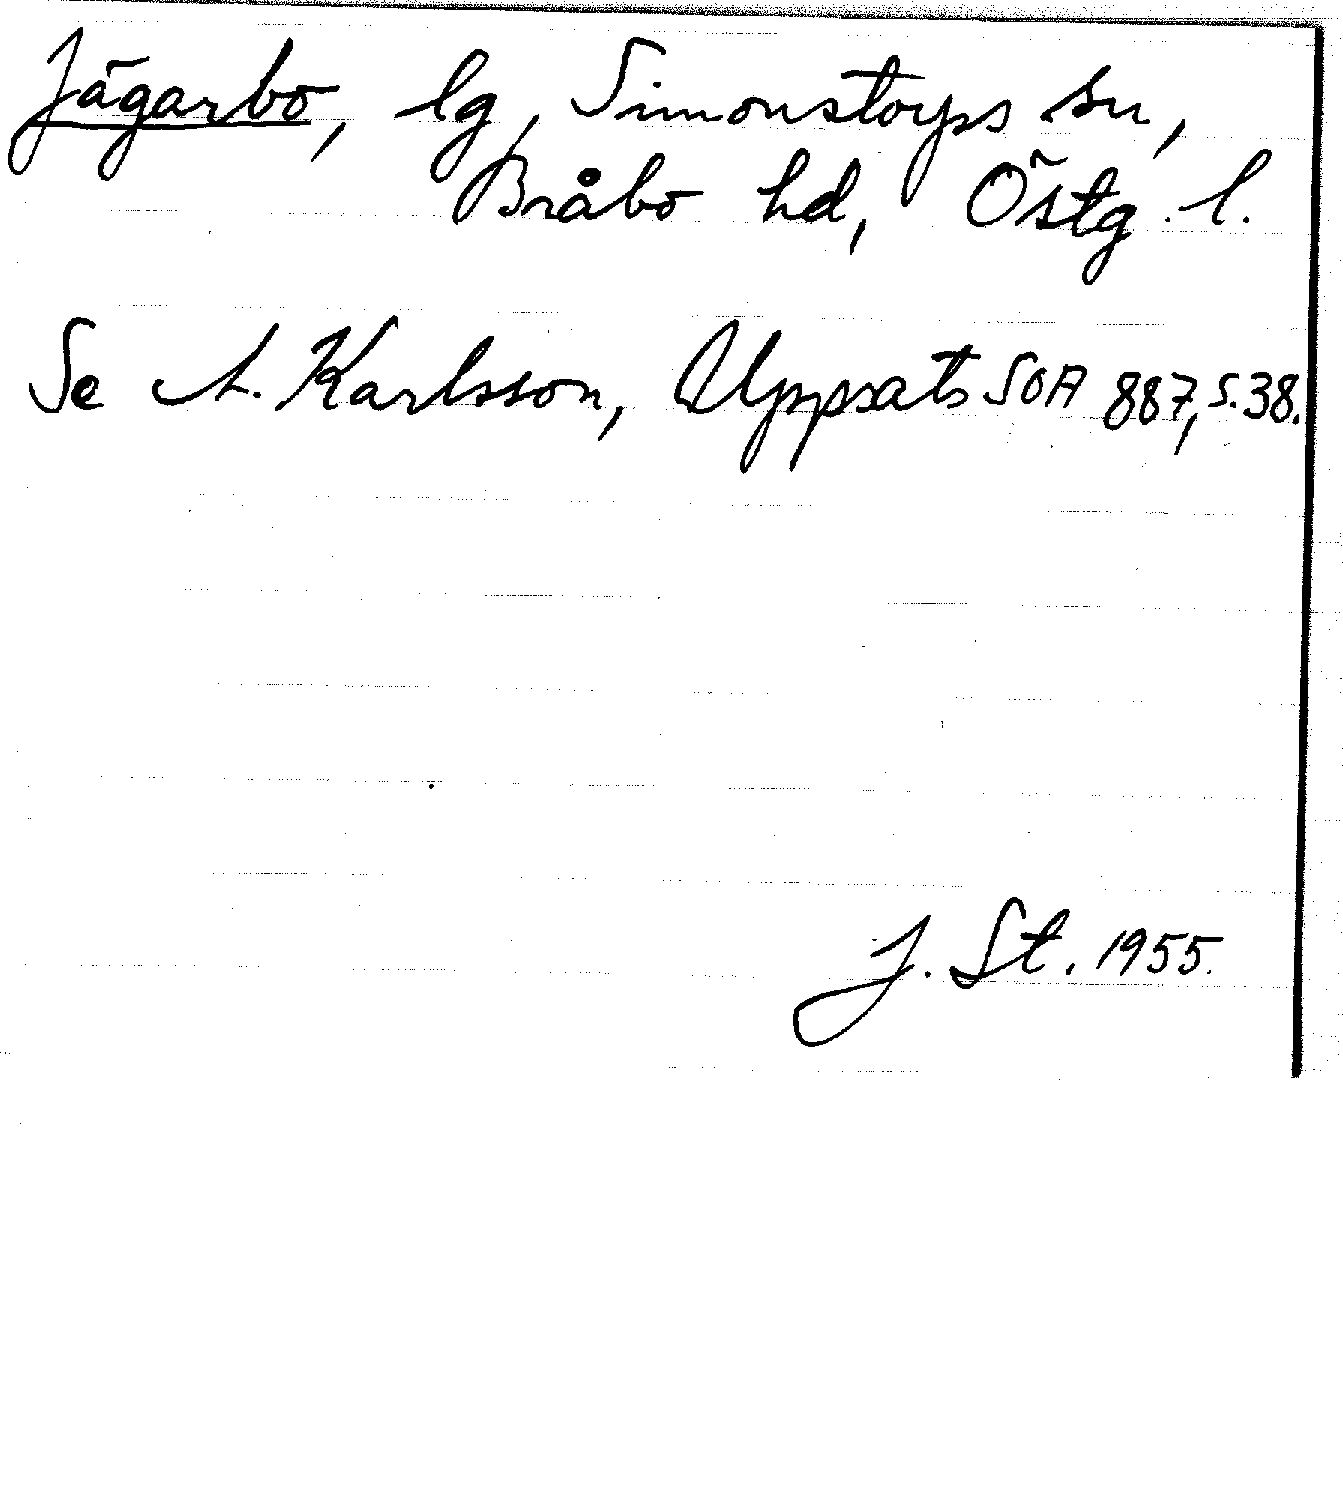 Jägarbo, lg, Simonstorps sn,
Bråbo hd, Östg. l.
Se A. Karlsson, Uppsats SOA 887, s. 38.
J. St. 1955.